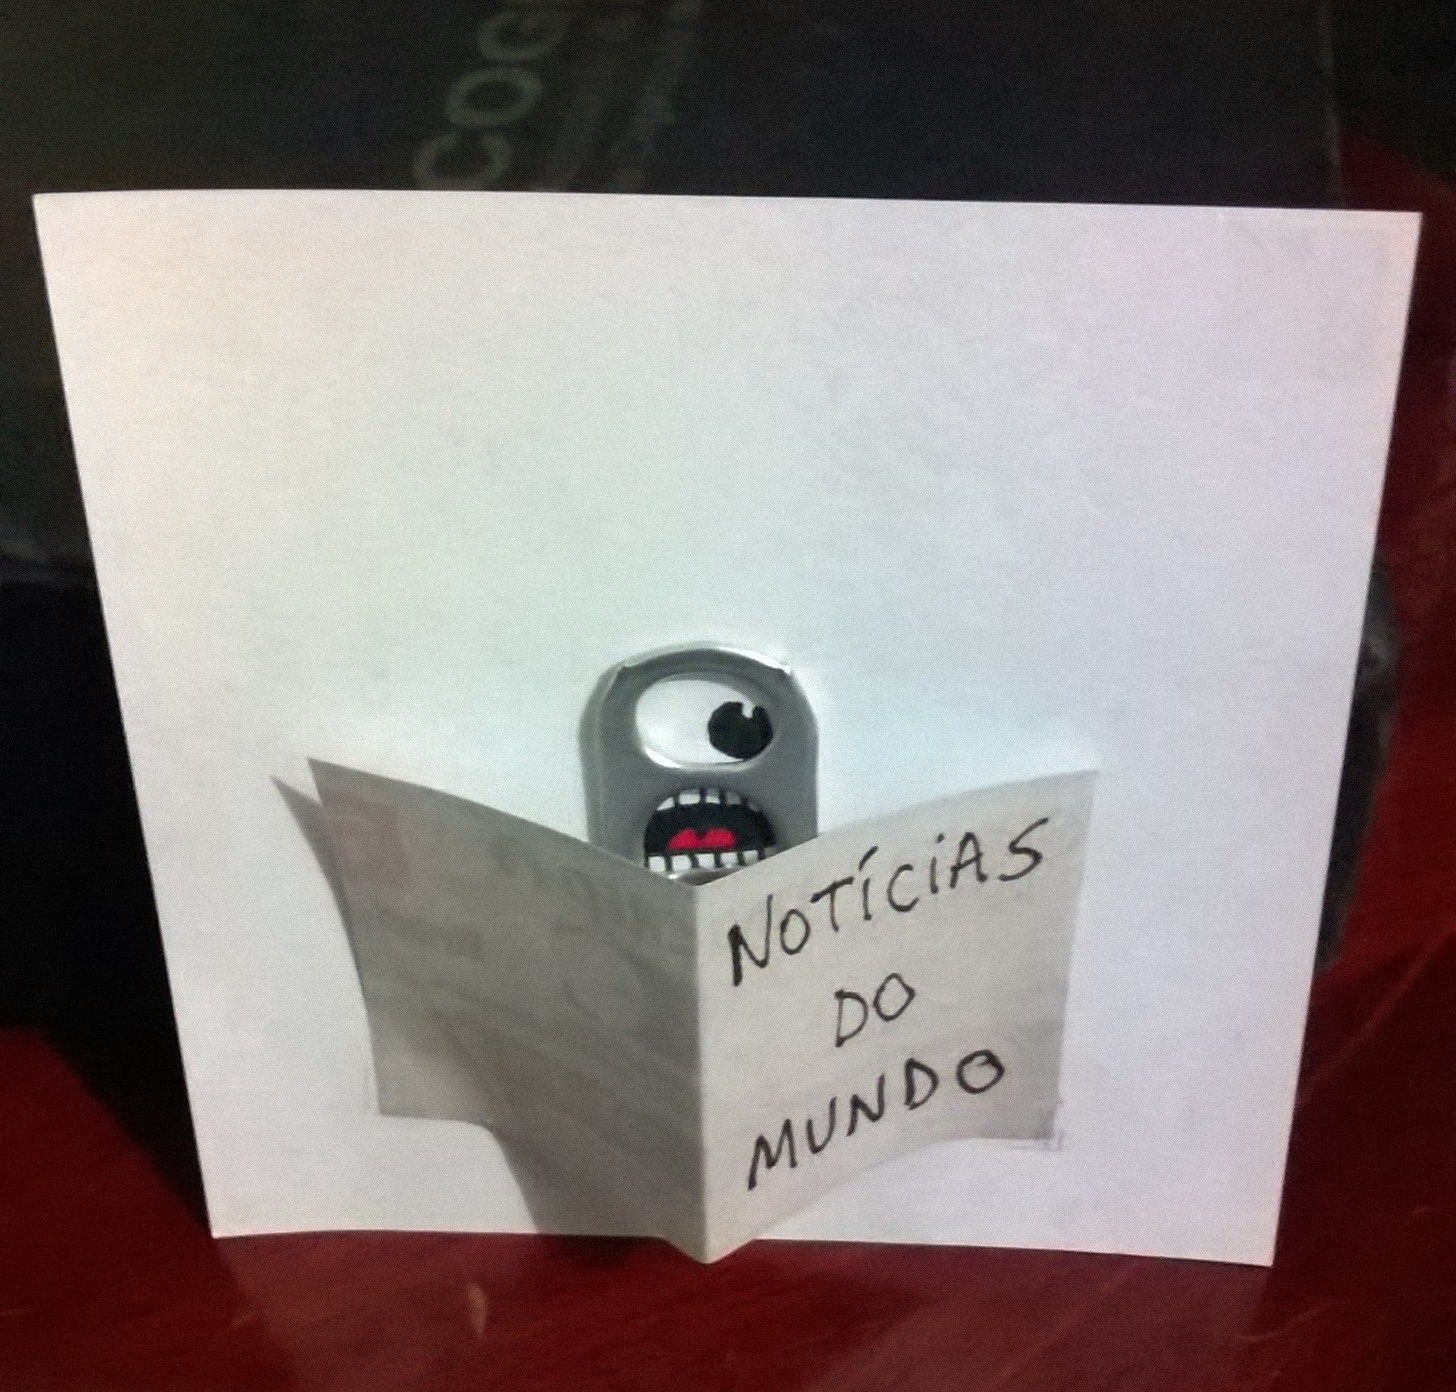 COG
NOTÍCIAS
DO
MUNDO